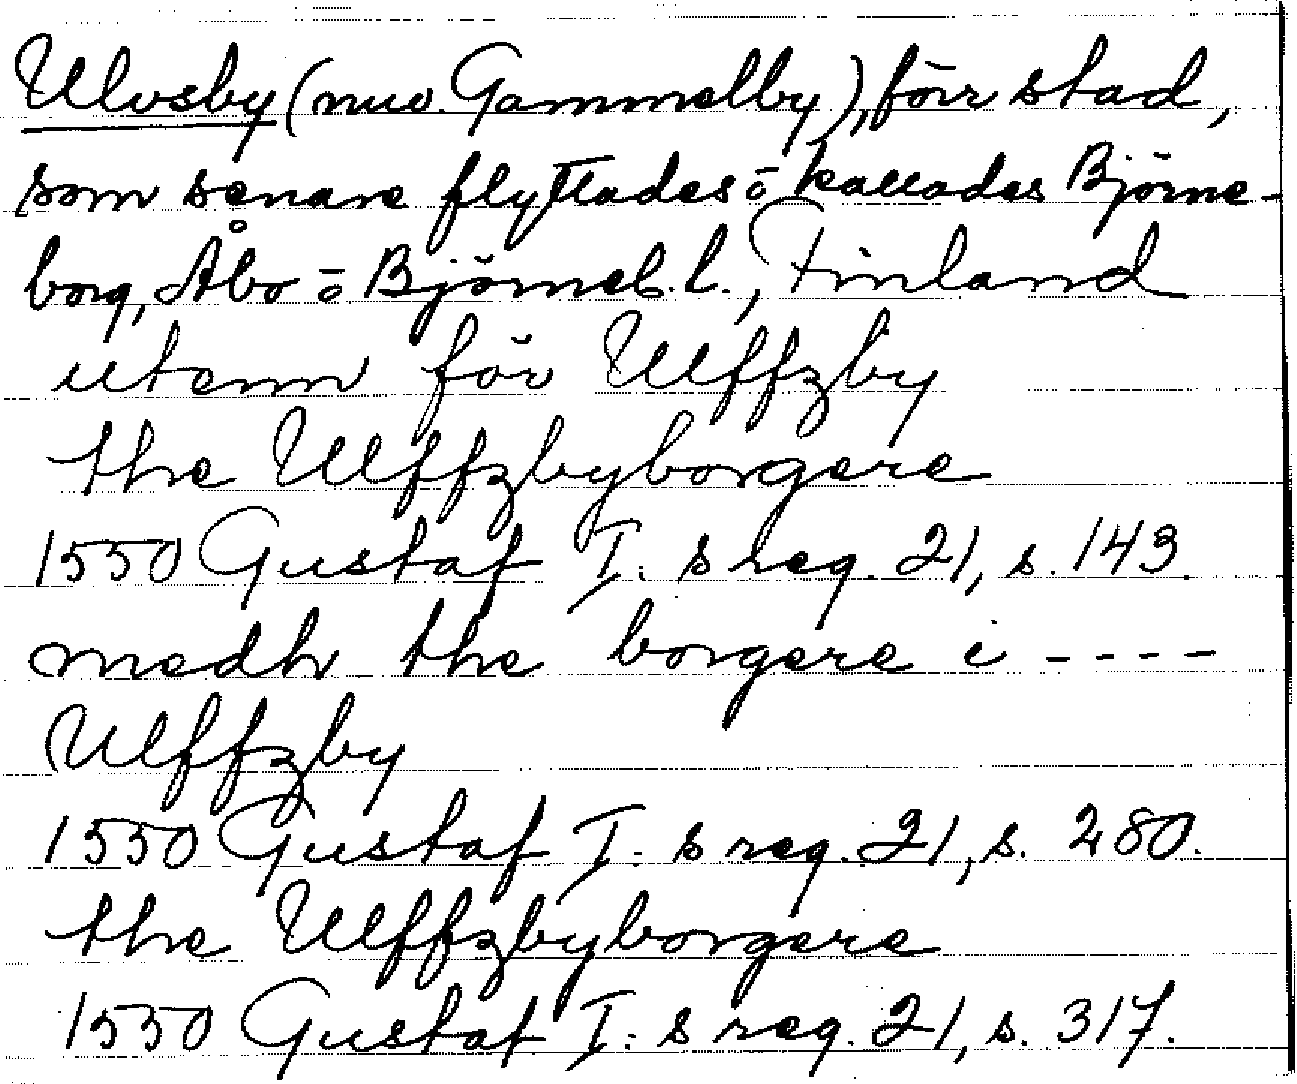 Ulvsby (nuv. Gammelby), förr stad,
som senare flyttades o kallades Björne-
borg, Åbo o Björneb. l., Finland
utenn för Ulffzby
the Ulffzbyborgere
1550 Gustaf I: s reg. 21, s. 143.
medh the borgere i ----
Ulffzby
1550 Gustaf I: s reg. 21, s. 280.
the Ulffzbyborgere
1550 Gustaf I: s reg. 21, s. 317.